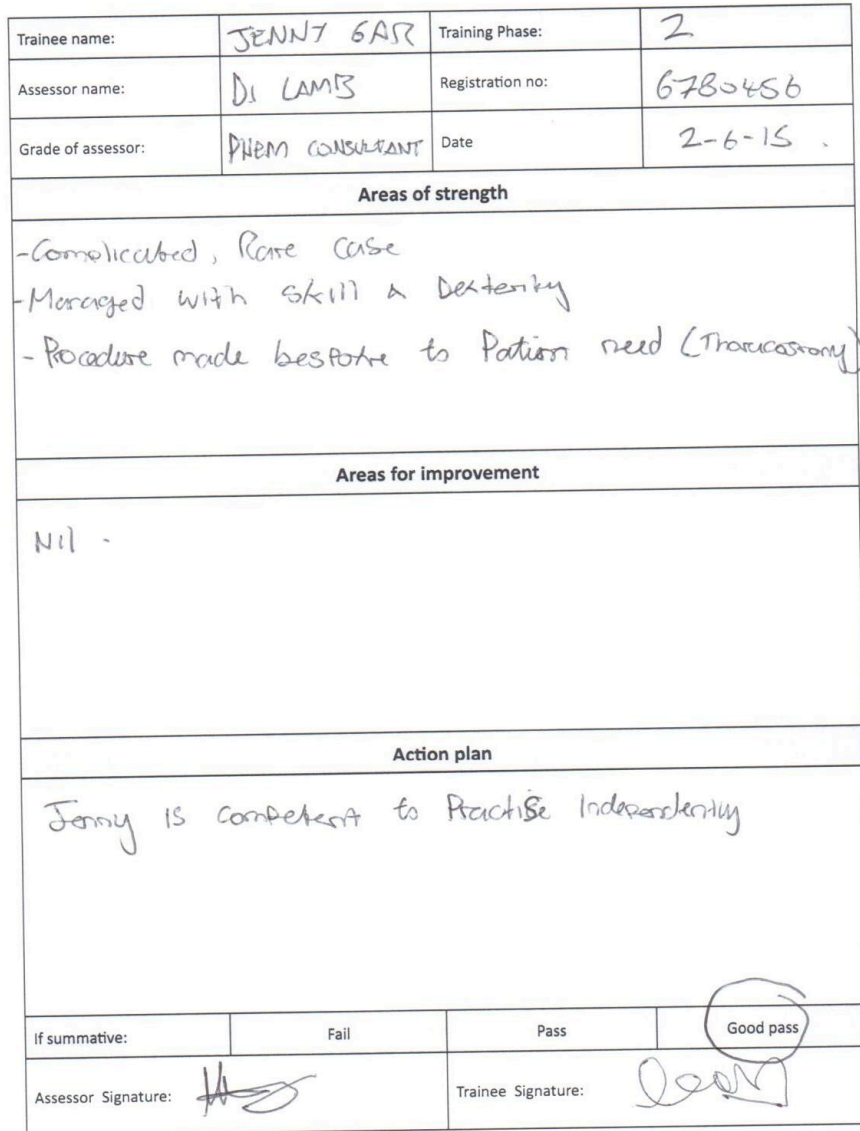 Trainee name: JENNY GAR Training Phase: 2
Assessor name: Di LAMB Registration no: 6780456
Grade of assessor: PHEM CONSULTANT Date 2-6-15 .
Areas of strength
- Complicated, Rare case
- Managed with Skill & Dexterity
- Procedure made bespoke to Patient need (Thoracostomy)
Areas for improvement
Nil .
Action plan
Jenny is competent to Practise Independently
If summative: Fail Pass Good pass
Assessor Signature: Trainee Signature: